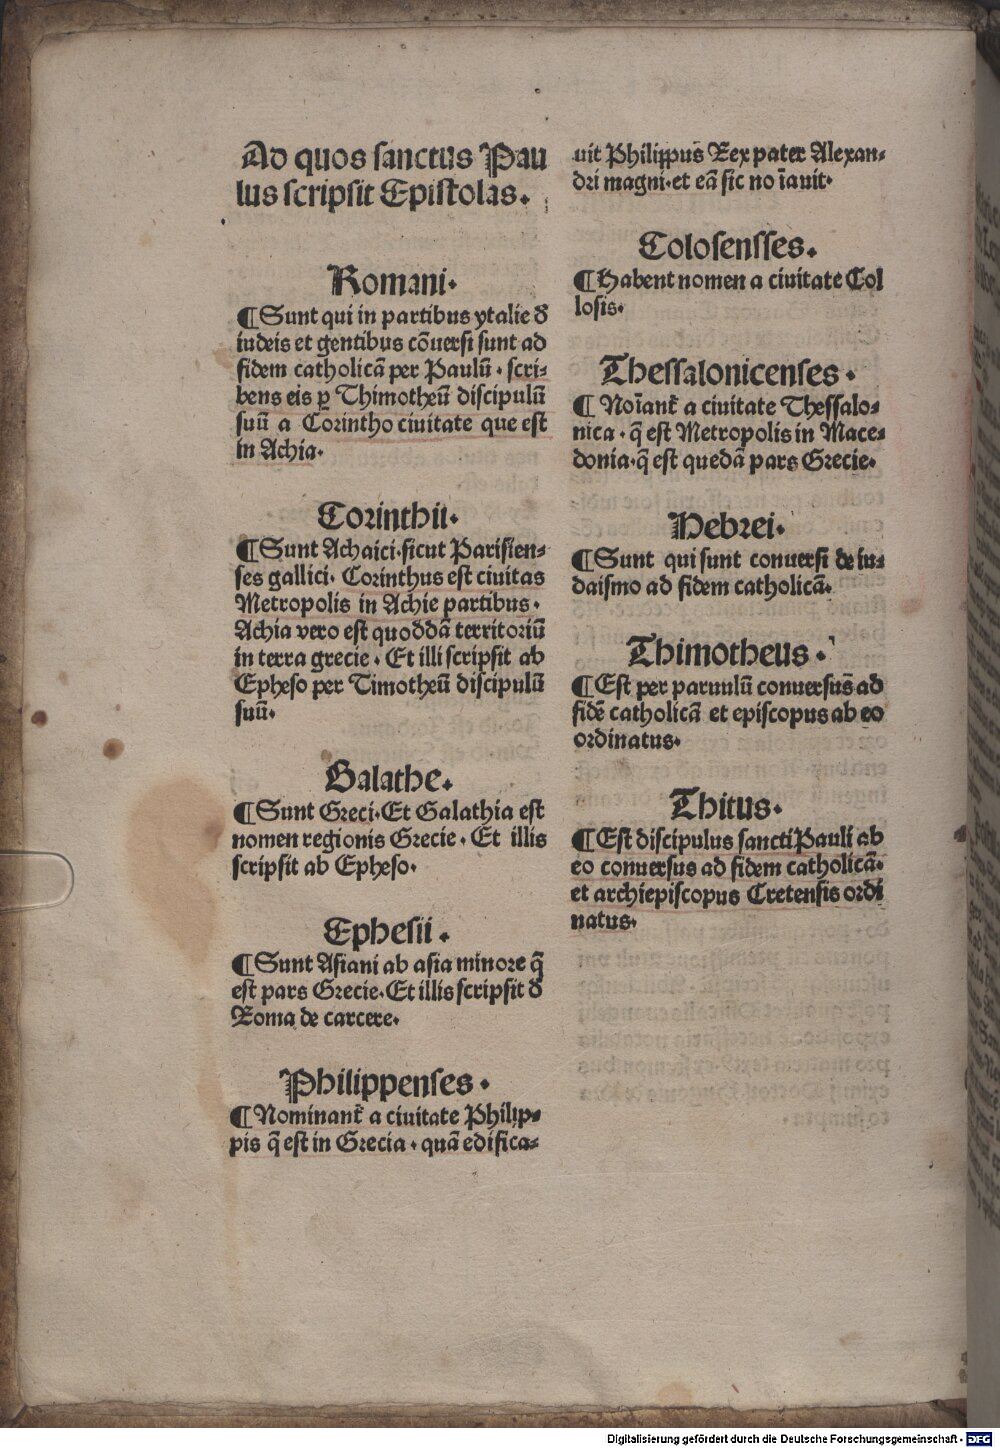 Ad quos sanctus Pau
lus scripsit Epistolas.
Romani.
¶ Sunt qui in partibus ytalie đ
iudeis et gentibus cōuersi sunt ad
fidem catholicā per Paulū . scri-
bens eis ꝑ Thimotheū discipulū
suū a Corintho ciuitate que est
in Achia.
Corinthii.
¶ Sunt Achaici.sicut Parisien-
ses gallici. Corinthus est ciuitas
Metropolis in Achie partibus.
Achia vero est quoddā territoriū
in terra grecie . Et illi scripsit ab
Epheso per Timotheū discipulū
suū.
Galathe.
¶ Sunt Greci.Et Galathia est
nomen regionis Grecie . Et illis
scripsit ab Epheso.
Ephesii .
¶ Sunt Asiani ab asia minore q̄
est pars Grecie.Et illis scripsit đ
Roma de carcere.
Philippenses .
¶ Nominant᷑ a ciuitate Philip-
pis q̄ est in Grecia . quā edifica-
uit Philippus Rex pater Alexan-
dri magni.et eā sic no īauit.
Colosensses.
¶ Habent nomen a ciuitate Col
losis.
Thessalonicenses .
¶ Noīant᷑ a ciuitate Thessalo-
nica . q̄ est Metropolis in Mace-
donia.q̄ est quedā pars Grecie.
Hebrei.
¶ Sunt qui sunt conuersi de iu-
daismo ad fidem catholicā.
Thimotheus .
¶ Est per paruulū conuersus ad
fidē catholicā et episcopus ab eo
ordinatus.
Thitus.
¶ Est discipulus sancti Pauli ab
eo conuersus ad fidem catholicā.
et archiepiscopus Cretensis ordi
natus.
Digitalisierung gefördert durch die Deutsche Forschungsgemeinschaft - DFG